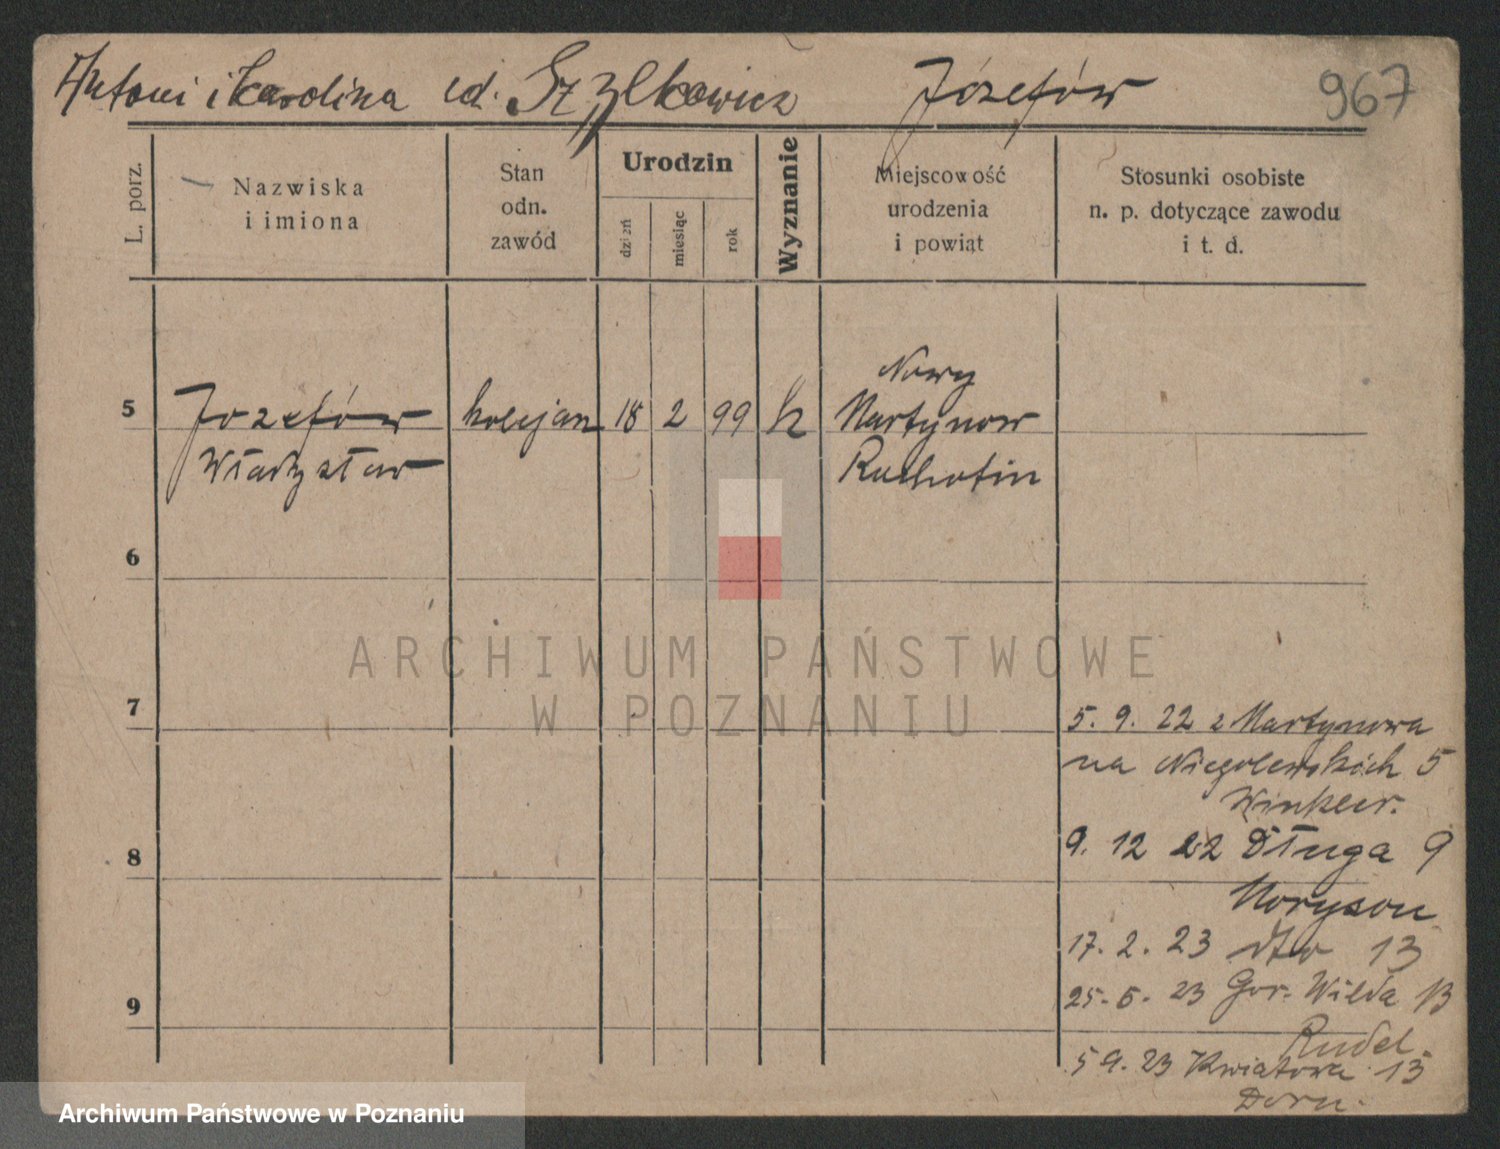 Antoni i Karolina ed. Szylkowicz Józefów 967
L. porz.
Nazwiska
i imiona
Stan
odn.
zawód
Urodzin
dzień
miesiąc
rok
Wyznanie
Miejscowość
urodzenia
i powiat
Stosunki osobiste
n. p. dotyczące zawodu
i t. d.
Nowy
5 Józefów kolejarz 18 2 99 k Martynow
Władysław Ruchotin
6
7
5. 9. 22 z Martynowa
na Niegolewskich 5
8
9. 12 22 Długa 9
Noryson
17. 2. 23 dto 13
25. 5. 23 Gor. Wilda 13
9
Rudel
5 9. 23 Kwiatowa 13
Dorn.
ARCHIWUM PAŃSTWOWE
W POZNANIU
Archiwum Państwowe w Poznaniu